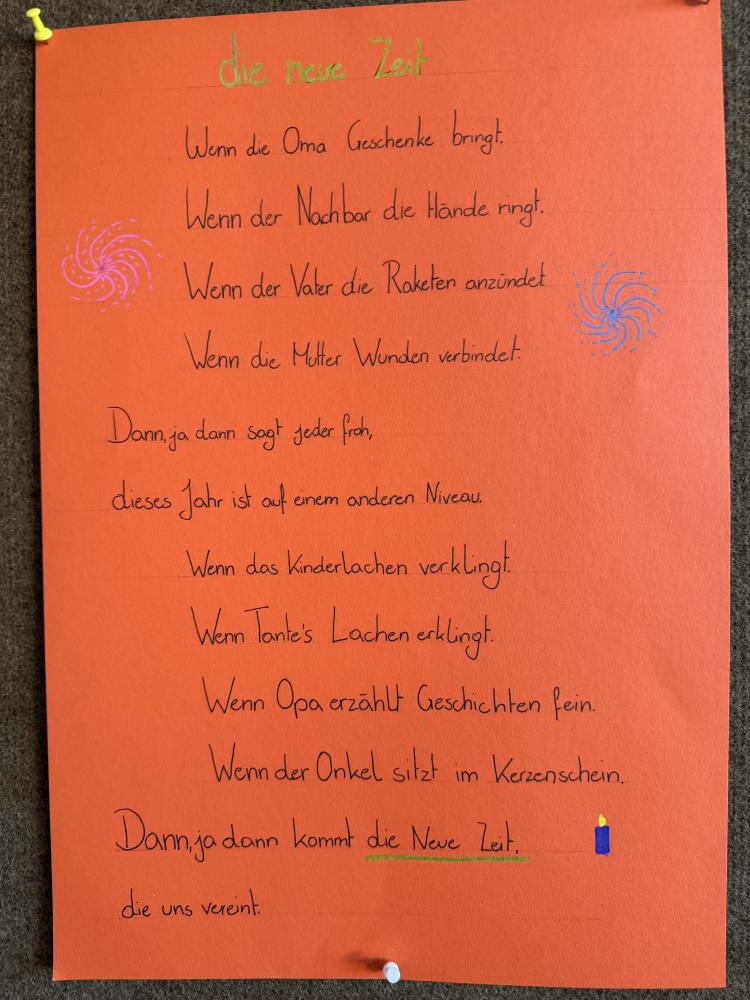 die neue Zeit
Wenn die Oma Geschenke bringt.
Wenn der Nachbar die Hände ringt.
Wenn der Vater die Raketen anzündet
Wenn die Mutter Wunden verbindet.
Dann, ja dann sagt jeder froh,
dieses Jahr ist auf einem anderen Niveau.
Wenn das Kinderlachen verklingt.
Wenn Tante's Lachen erklingt.
Wenn Opa erzählt Geschichten fein.
Wenn der Onkel sitzt im Kerzenschein.
Dann, ja dann kommt die Neue Zeit,
die uns vereint.